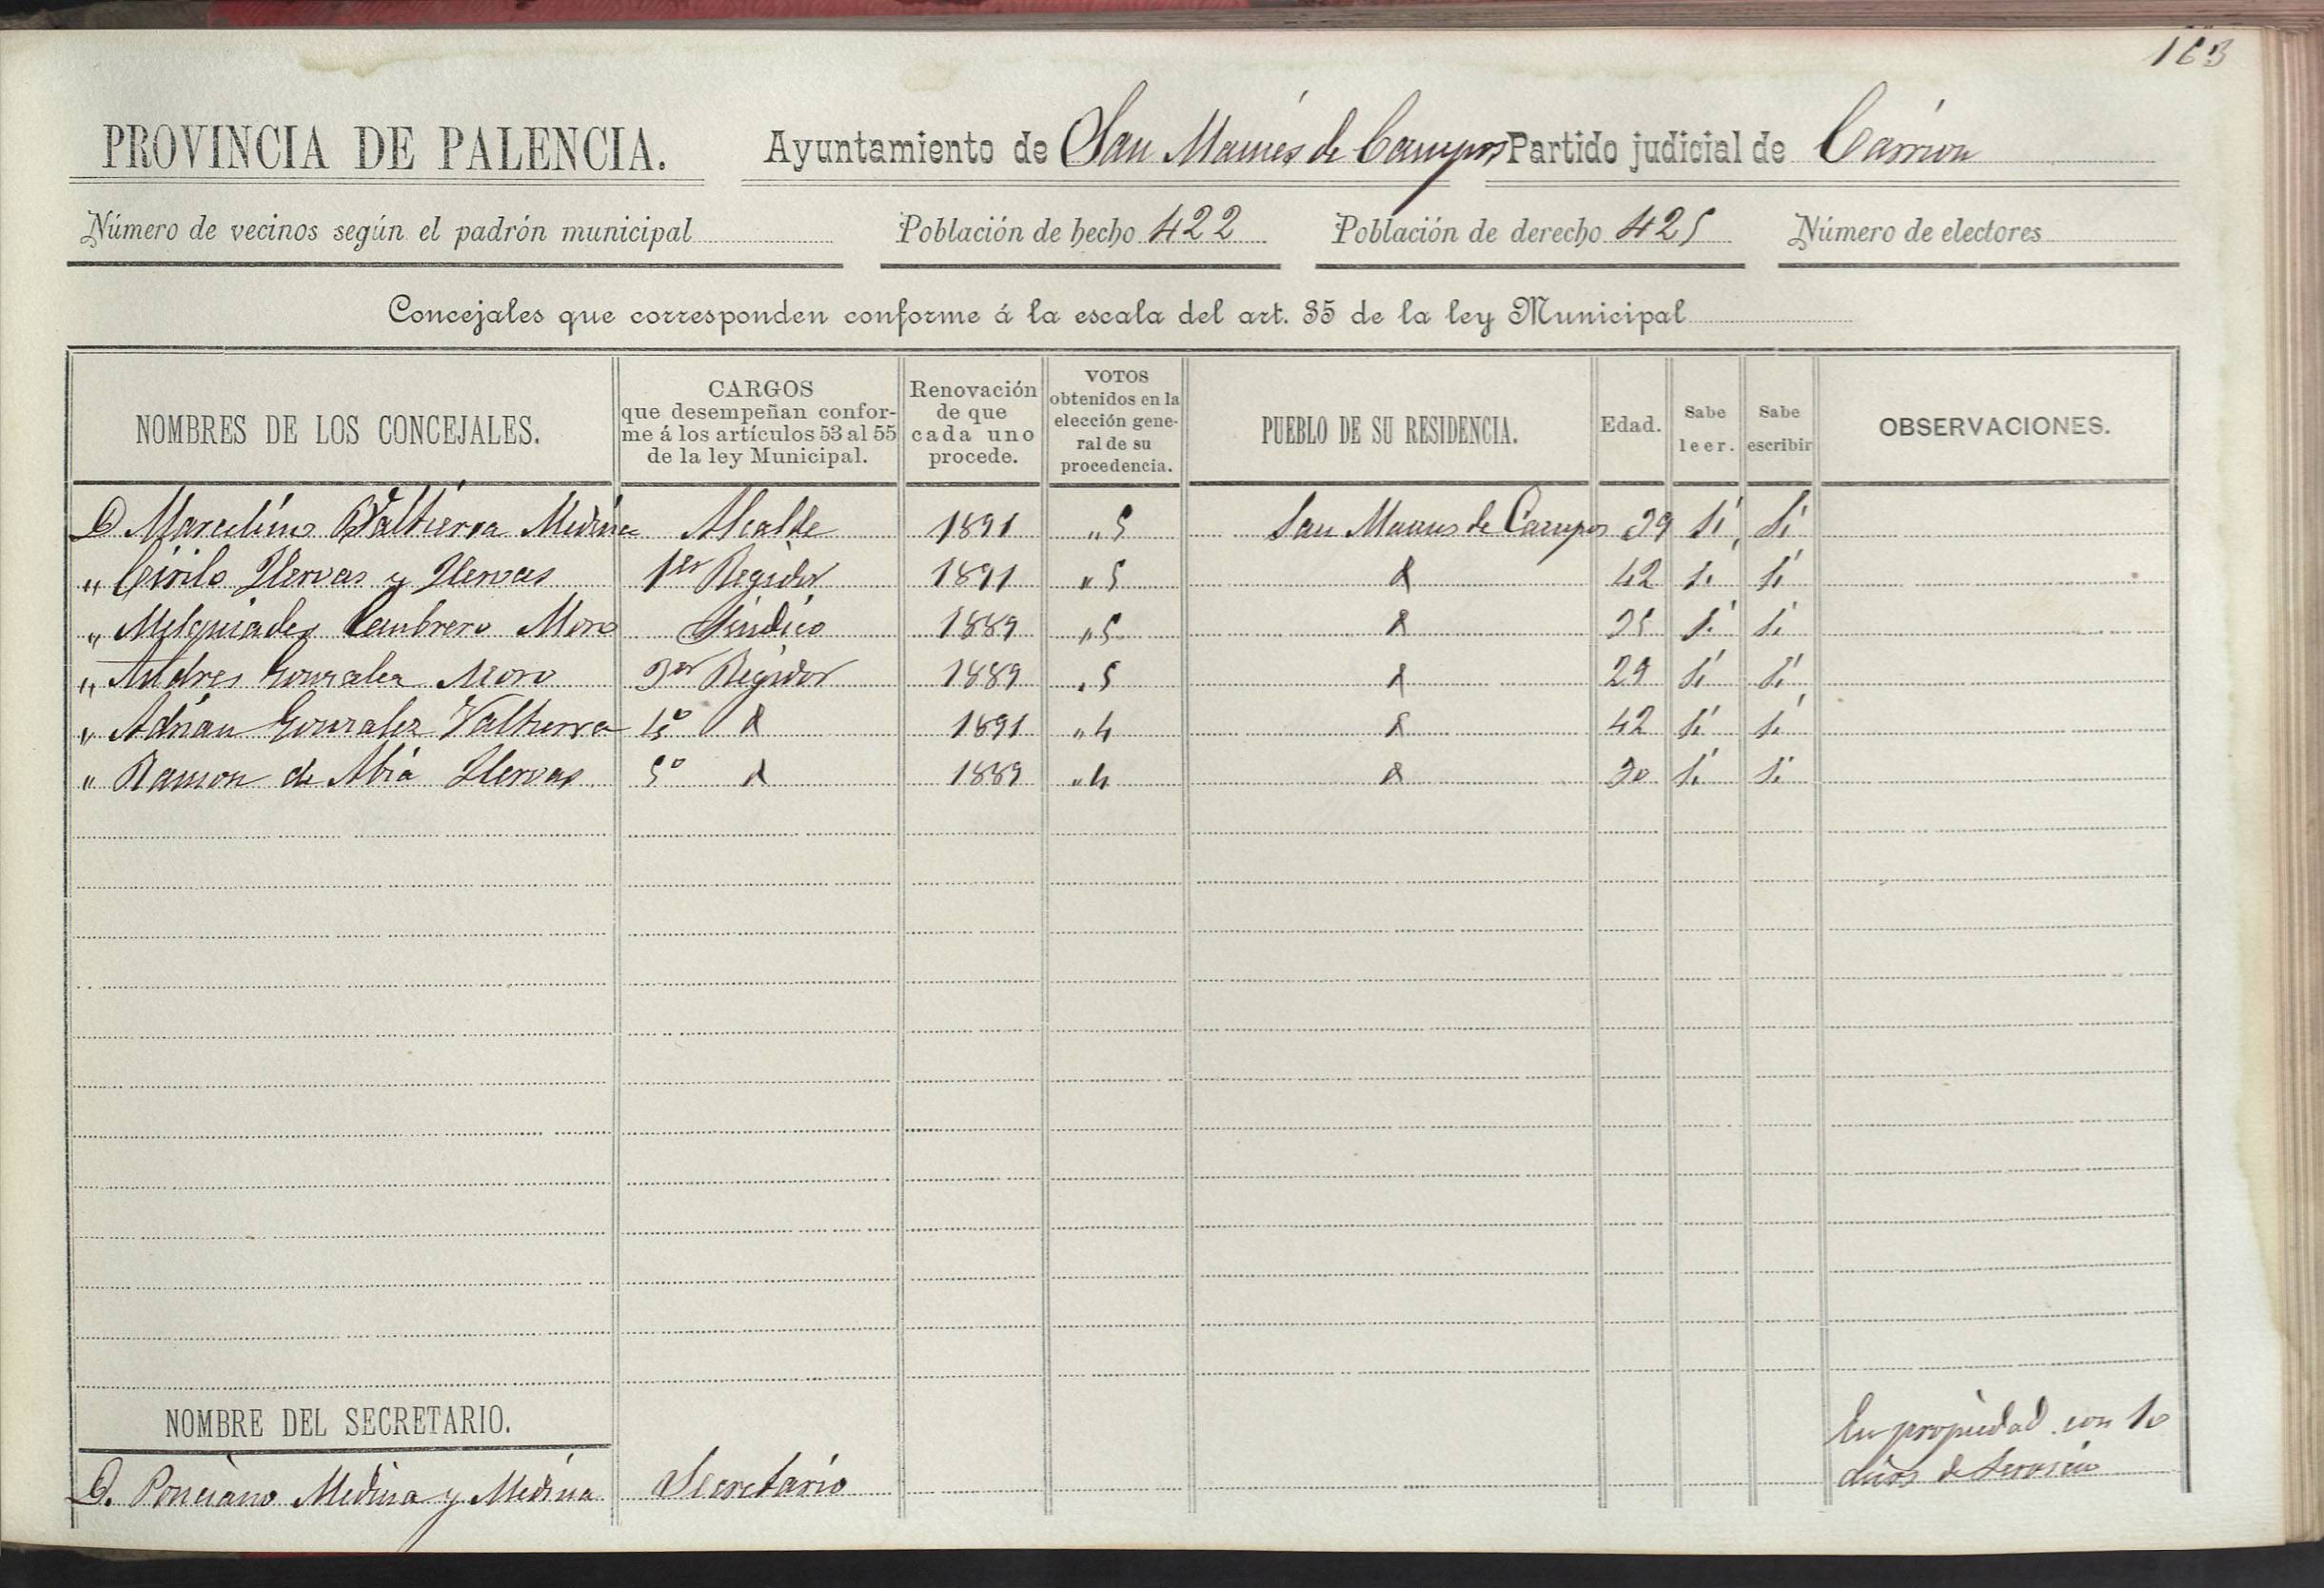 163
PROVINCIA DE PALENCIA. Ayuntamiento de San Mamés de Campos Partido judicial de Carrion
Número de vecinos según el padrón municipal Población de hecho 422 Población de derecho 425 Número de electores
Concejales que corresponden conforme á la escala del art. 35 de la ley Municipal
NOMBRES DE LOS CONCEJALES. CARGOS que desempeñan conforme á los artículos 53 al 55 de la ley Municipal. Renovación de que cada uno procede. VOTOS obtenidos en la elección general de su procedencia. PUEBLO DE SU RESIDENCIA. Edad. Sabe leer. Sabe escribir OBSERVACIONES.
D Marcelino Valtierra Medina Alcalde 1891 „ 5 San Mames de Campos 39 Sí Sí
„ Cirilo Hervas y Hervas 1er Regidor 1891 „ 5 d 42 Si Sí
„ Melquiades Cambrero Moro Sindico 1889 „ 5 d 35 Sí Sí
„ Andres Gonzalez Moro 3er Regidor 1889 „ 5 d 29 Sí Sí
„ Adrian Gonzalez Valtierra 4º d 1891 „ 4 d 42 Sí Sí
„ Ramon de Abia Hervas 5º d 1889 „ 4 d 30 Sí Sí
NOMBRE DEL SECRETARIO.
D. Ponciano Medina y Medina Secretario En propiedad con 10
años de servicio